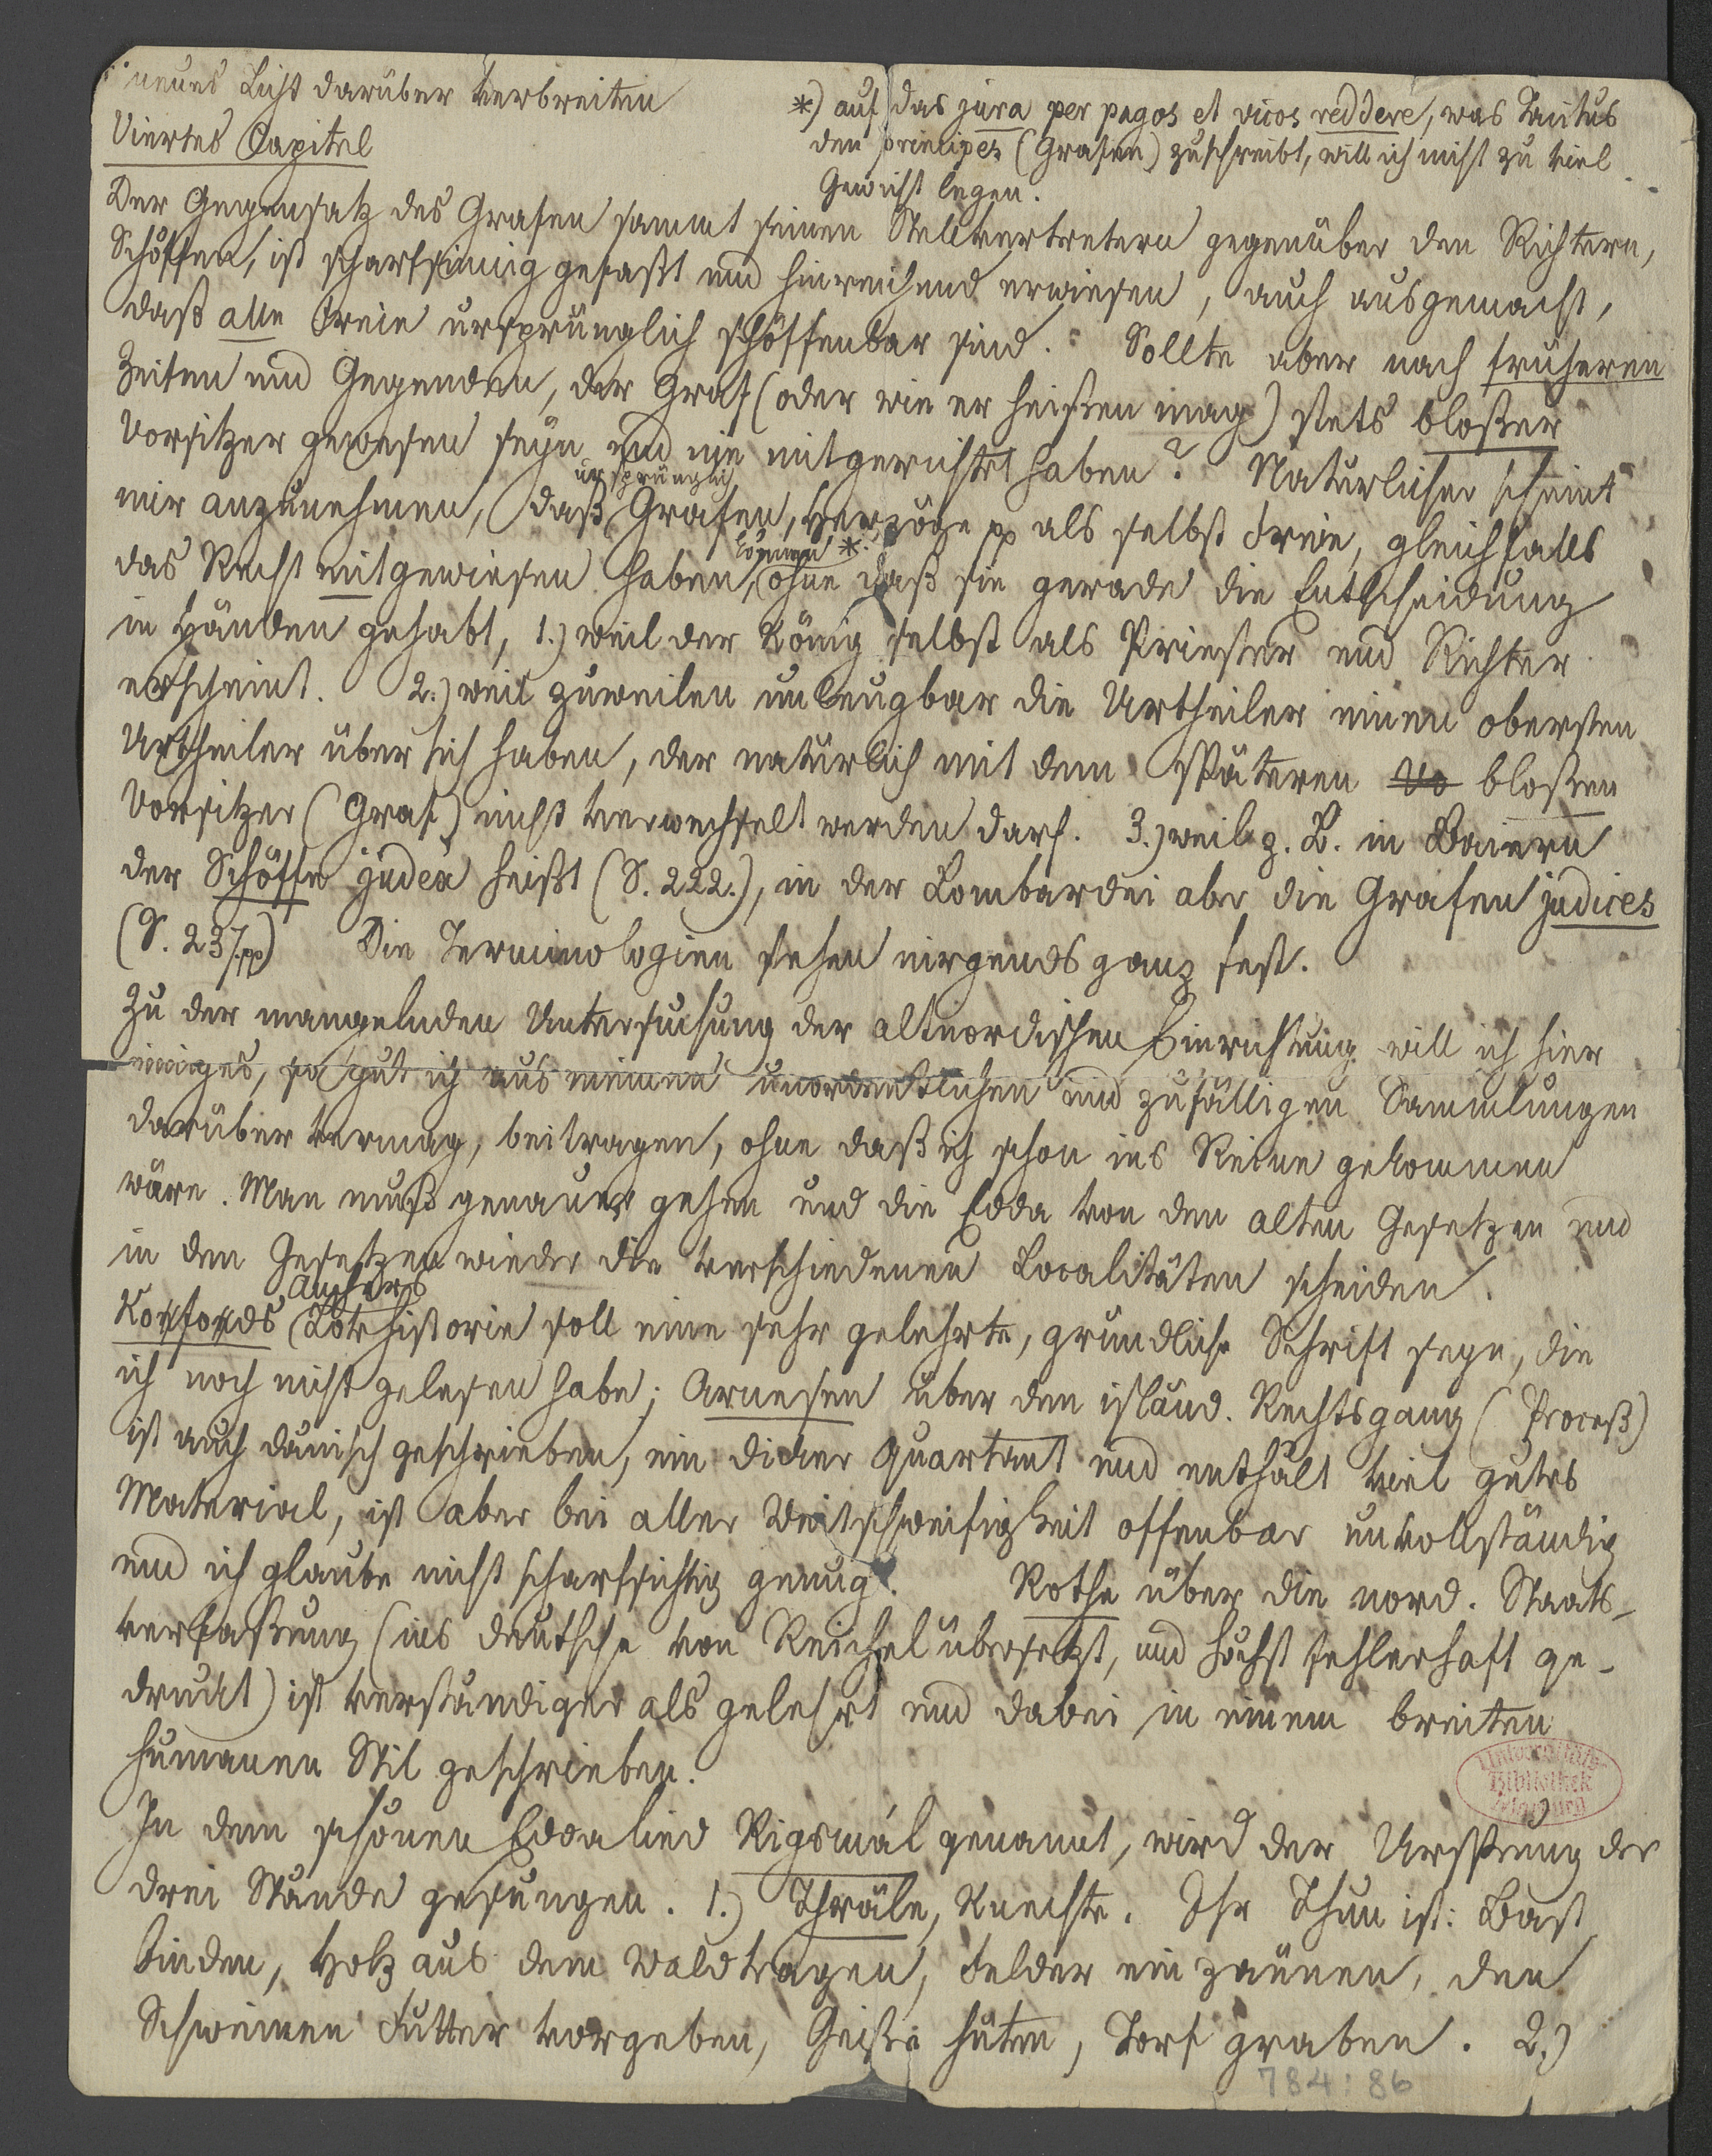 neues Licht darüber verbreiten
Viertes Capitel
*) auf das jura per pagos et vicos reddere, was Tacitus
den principes (Grafen) zuschreibt, will ich nicht zu viel
Gewicht legen.
Der Gegensatz des Grafen sammt seinen Stellvertretern gegenüber den Richtern,
Schöffen, ist scharfsinnig gefaßt und hinreichend erwiesen, auch ausgemacht,
daß alle Freie ursprünglich schöffenbar sind. Sollte aber nach früheren
Zeiten und Gegenden, der Graf (oder wie er heißen mag) stets bloßer
Vorsitzer gewesen seyn und nie mitgerichtet haben? Natürlicher scheint
mir anzunehmen, daß ursprünglich Grafen, Herzöge pp als selbst Freie, gleichfalls
das Recht mitgewiesen haben können *, ohne daß sie gerade die Entscheidung
in Händen gehabt, 1.) weil der König selbst als Priester und Richter
erscheint. 2.) weil zuweilen unleugbar die Urtheiler einen obersten
Urtheiler über sich haben, der natürlich mit dem späteren Vo bloßen
Vorsitzer (Graf) nicht verwechselt werden darf. 3.) weil z. B. in Baiern
der Schöffe judex heißt (S. 222.), in der Lombardei aber die Grafen judices
(S. 237.pp) Die Terminologien stehen nirgends ganz fest.
Zu der mangelnden Untersuchung der altnordischen Einrichtung will ich hier
einiges, so gut ich aus meinen unordentlichen und zufälligen Sammlungen
darüber vermag, beitragen, ohne daß ich schon ins Reine gekommen
wäre. Man muß genauer gehen und die Edda von den alten Gesetzen und
in den Gesetzen wieder die verschiedenen Localitäten scheiden.
Kofods Anchers Lovhistorie soll eine sehr gelehrte, gründliche Schrift seyn, die
ich noch nicht gelesen habe; Arnesen über den isländ. Rechtsgang (Proceß)
ist auch dänisch geschrieben, ein dicker Quartant und enthält viel gutes
Material, ist aber bei aller Weitschweifigkeit offenbar unvollständig
und ich glaube nicht scharfsichtig genug. Rothe über die nord. Staats-
verfaßung (ins deutsche von Reichel übersetzt, und höchst fehlerhaft ge-
druckt) ist verständiger als gelehrt und dabei in einem breiten
humanen Stil geschrieben.
In dem schönen Eddalied Rigsmál genannt, wird der Ursprung der
drei Stände gesungen. 1.) Thräle, Knechte. Ihr Thun ist: Bast
binden, Holz aus dem Wald tragen, Felder einzäunen, den
Schweinen Futter vorgeben, Geiße hüten, Torf graben. 2.)
Universitäts-
Bibliothek
Marburg
784:86